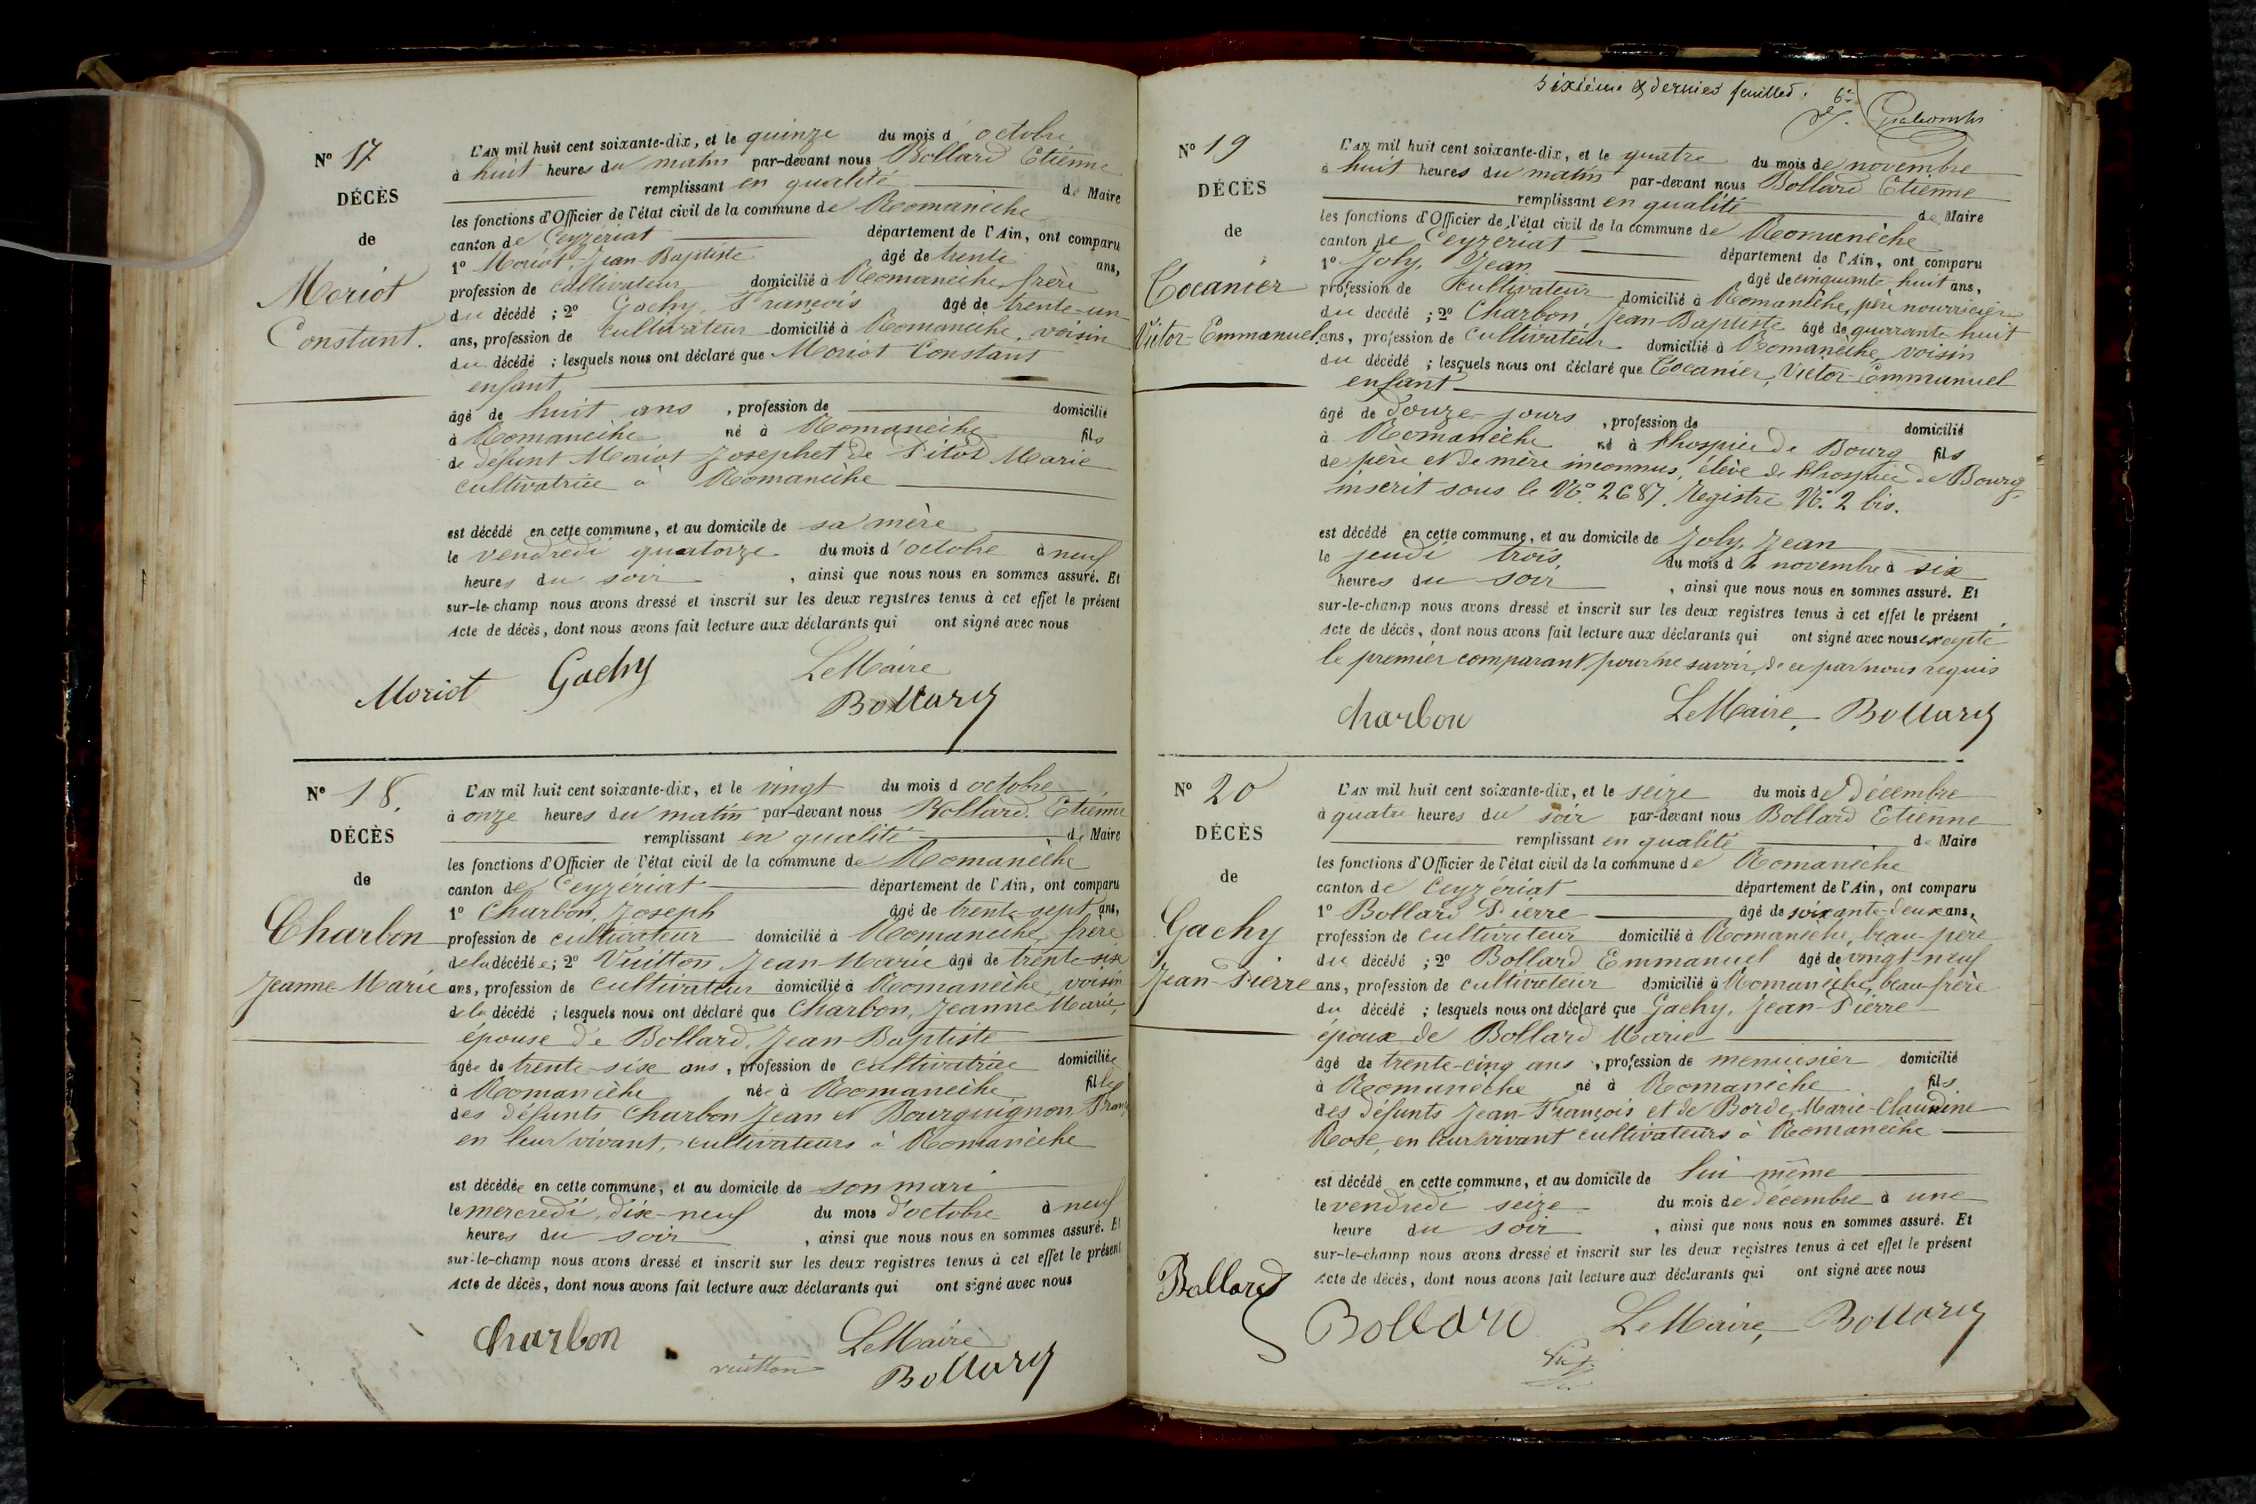 N° 17
DÉCÈS
de
Moriot
Constant.
L'AN mil huit cent soixante-dix, et le quinze du mois d'octobre
à huit heures du matin par-devant nous Bollard Etienne
remplissant en qualité de Maire
les fonctions d'Officier de l'état civil de la commune de Romanèche
canton de Ceyzériat département de l'Ain, ont comparu
1° Moriot, Jean-Baptiste âgé de trente ans,
profession de cultivateur domicilié à Romanèche, frère
du décédé ; 2° Gachy, François âgé de trente-un
ans, profession de cultivateur domicilié à Romanèche, voisin
du décédé ; lesquels nous ont déclaré que Moriot Constant
enfant
âgé de huit ans , profession de domicilié
à Romanèche né à Romanèche fils
de défunt Moriot Joseph et de Pitod Marie
cultivatrice à Romanèche
est décédé en cette commune, et au domicile de sa mère
le vendredi quatorze du mois d'octobre à neuf
heures du soir , ainsi que nous nous en sommes assuré. Et
sur-le-champ nous avons dressé et inscrit sur les deux registres tenus à cet effet le présent
Acte de décès, dont nous avons fait lecture aux déclarants qui ont signé avec nous
Moriot Gachy Le Maire
Bollard
N° 18.
DÉCÈS
de
Charbon
Jeanne-Marie
L'AN mil huit cent soixante-dix, et le vingt du mois d octobre
à onze heures du matin par-devant nous Bollard Etienne
remplissant en qualité de Maire
les fonctions d'Officier de l'état civil de la commune de Romanèche
canton de Ceyzériat département de l'Ain, ont comparu
1° Charbon, Joseph âgé de trente-sept ans,
profession de cultivateur domicilié à Romanèche, frère
de la décédée ; 2° Vuitton Jean-Marie âgé de trente-six
ans, profession de cultivateur domicilié à Romanèche, voisin
de la décédé ; lesquels nous ont déclaré que Charbon, Jeanne Marie,
épouse de Bollard, Jean-Baptiste
âgée de trente-six ans , profession de cultivatrice domiciliée
à Romanèche née à Romanèche fille
des défunts Charbon Jean et Bourguignon
en leur vivant, cultivateurs à Romanèche
est décédée en cette commune, et au domicile de son mari
le mercredi, dix-neuf du mois d'octobre à neuf
heures du soir , ainsi que nous nous en sommes assuré. Et
sur-le-champ nous avons dressé et inscrit sur les deux registres tenus à cet effet le présent
Acte de décès, dont nous avons fait lecture aux déclarants qui ont signé avec nous
Charbon vuitton Le Maire
Bollard
Sixième & dernier feuillet. 6e
N° 19
DÉCÈS
de
Cocanier
Victor-Emmanuel.
L'AN mil huit cent soixante-dix, et le quatre du mois de novembre
à huit heures du matin par-devant nous Bollard Etienne
remplissant en qualité de Maire
les fonctions d'Officier de l'état civil de la commune de Romanèche
canton de Ceyzériat département de l'Ain, ont comparu
1° Joly, Jean âgé de cinquante-huit ans,
profession de cultivateur domicilié à Romanèche, père nourricier
du décédé ; 2° Charbon Jean-Baptiste âgé de quarante-huit
ans, profession de cultivateur domicilié à Romanèche, voisin
du décédé ; lesquels nous ont déclaré que Cocanier, Victor-Emmanuel
enfant
âgé de douze jours , profession de domicilié
à Romanèche né à l'hospice de Bourg fils
de père et de mère inconnus, élève de l'hospice de Bourg
inscrit sous le N° 2687. Registre N° 2 bis.
est décédé en cette commune, et au domicile de Joly, Jean
le jeudi trois, du mois de novembre à six
heures du soir , ainsi que nous nous en sommes assuré. Et
sur-le-champ nous avons dressé et inscrit sur les deux registres tenus à cet effet le présent
Acte de décès, dont nous avons fait lecture aux déclarants qui ont signé avec nous excepté
le premier comparant pour ne savoir, de ce par nous requis
Charbon Le Maire, Bollard
N° 20
DÉCÈS
de
Gachy
Jean-Pierre
L'AN mil huit cent soixante-dix, et le seize du mois de décembre
à quatre heures du soir par-devant nous Bollard Etienne
remplissant en qualité de Maire
les fonctions d'Officier de l'état civil de la commune de Romanèche
canton de Ceyzériat département de l'Ain, ont comparu
1° Bollard Pierre âgé de soixante-deux ans,
profession de cultivateur domicilié à Romanèche, beau-père
du décédé ; 2° Bollard Emmanuel âgé de vingt-neuf
ans, profession de cultivateur domicilié à Romanèche, beau-frère
du décédé ; lesquels nous ont déclaré que Gachy, Jean-Pierre
époux de Bollard Marie
âgé de trente-cinq ans , profession de menuisier domicilié
à Romanèche né à Romanèche fils
des défunts Jean-François et de Borde, Marie-Claudine
Rose, en leur vivant cultivateurs à Romanèche
est décédé en cette commune, et au domicile de lui même
le vendredi seize du mois de décembre à une
heure du soir , ainsi que nous nous en sommes assuré. Et
sur-le-champ nous avons dressé et inscrit sur les deux registres tenus à cet effet le présent
Acte de décès, dont nous avons fait lecture aux déclarants qui ont signé avec nous
Bollard Bollard Le Maire, Bollard